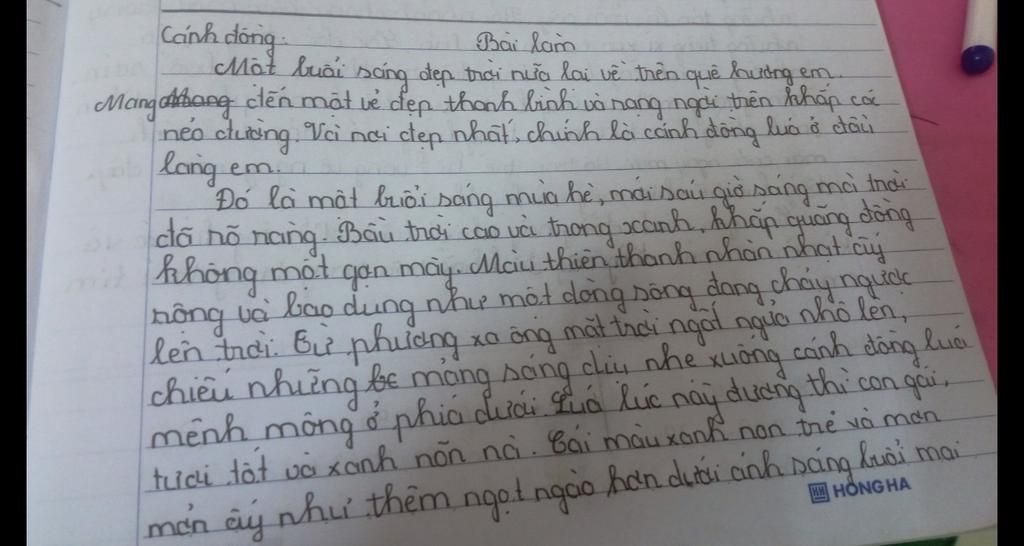 Cánh đồng. Bài làm
Một buổi sáng đẹp trời nữa lại về trên quê hương em.
Mang đến một vẻ đẹp thanh bình và rạng ngời trên khắp các
nẻo đường. Và nơi đẹp nhất, chính là cánh đồng lúa ở đầu
làng em.
Đó là một buổi sáng mùa hè, mới sáu giờ sáng mà trời
đã rõ ràng. Bầu trời cao và trong xanh, khắp quãng đồng
không một gợn mây. Màu thiên thanh nhàn nhạt ấy
rộng và bao dung như một dòng sông đang chảy ngược
lên trời. Từ phương xa ông mặt trời ngất ngưởng nhô lên,
chiếu những mảng sáng dịu nhẹ xuống cánh đồng lúa
mênh mông ở phía dưới. Lúa lúc này đương thì con gái,
tươi tốt và xanh nõn nà. Cái màu xanh non trẻ và mơn
mởn ấy như thêm ngọt ngào hơn dưới ánh sáng buổi mai
HH HỒNG HA